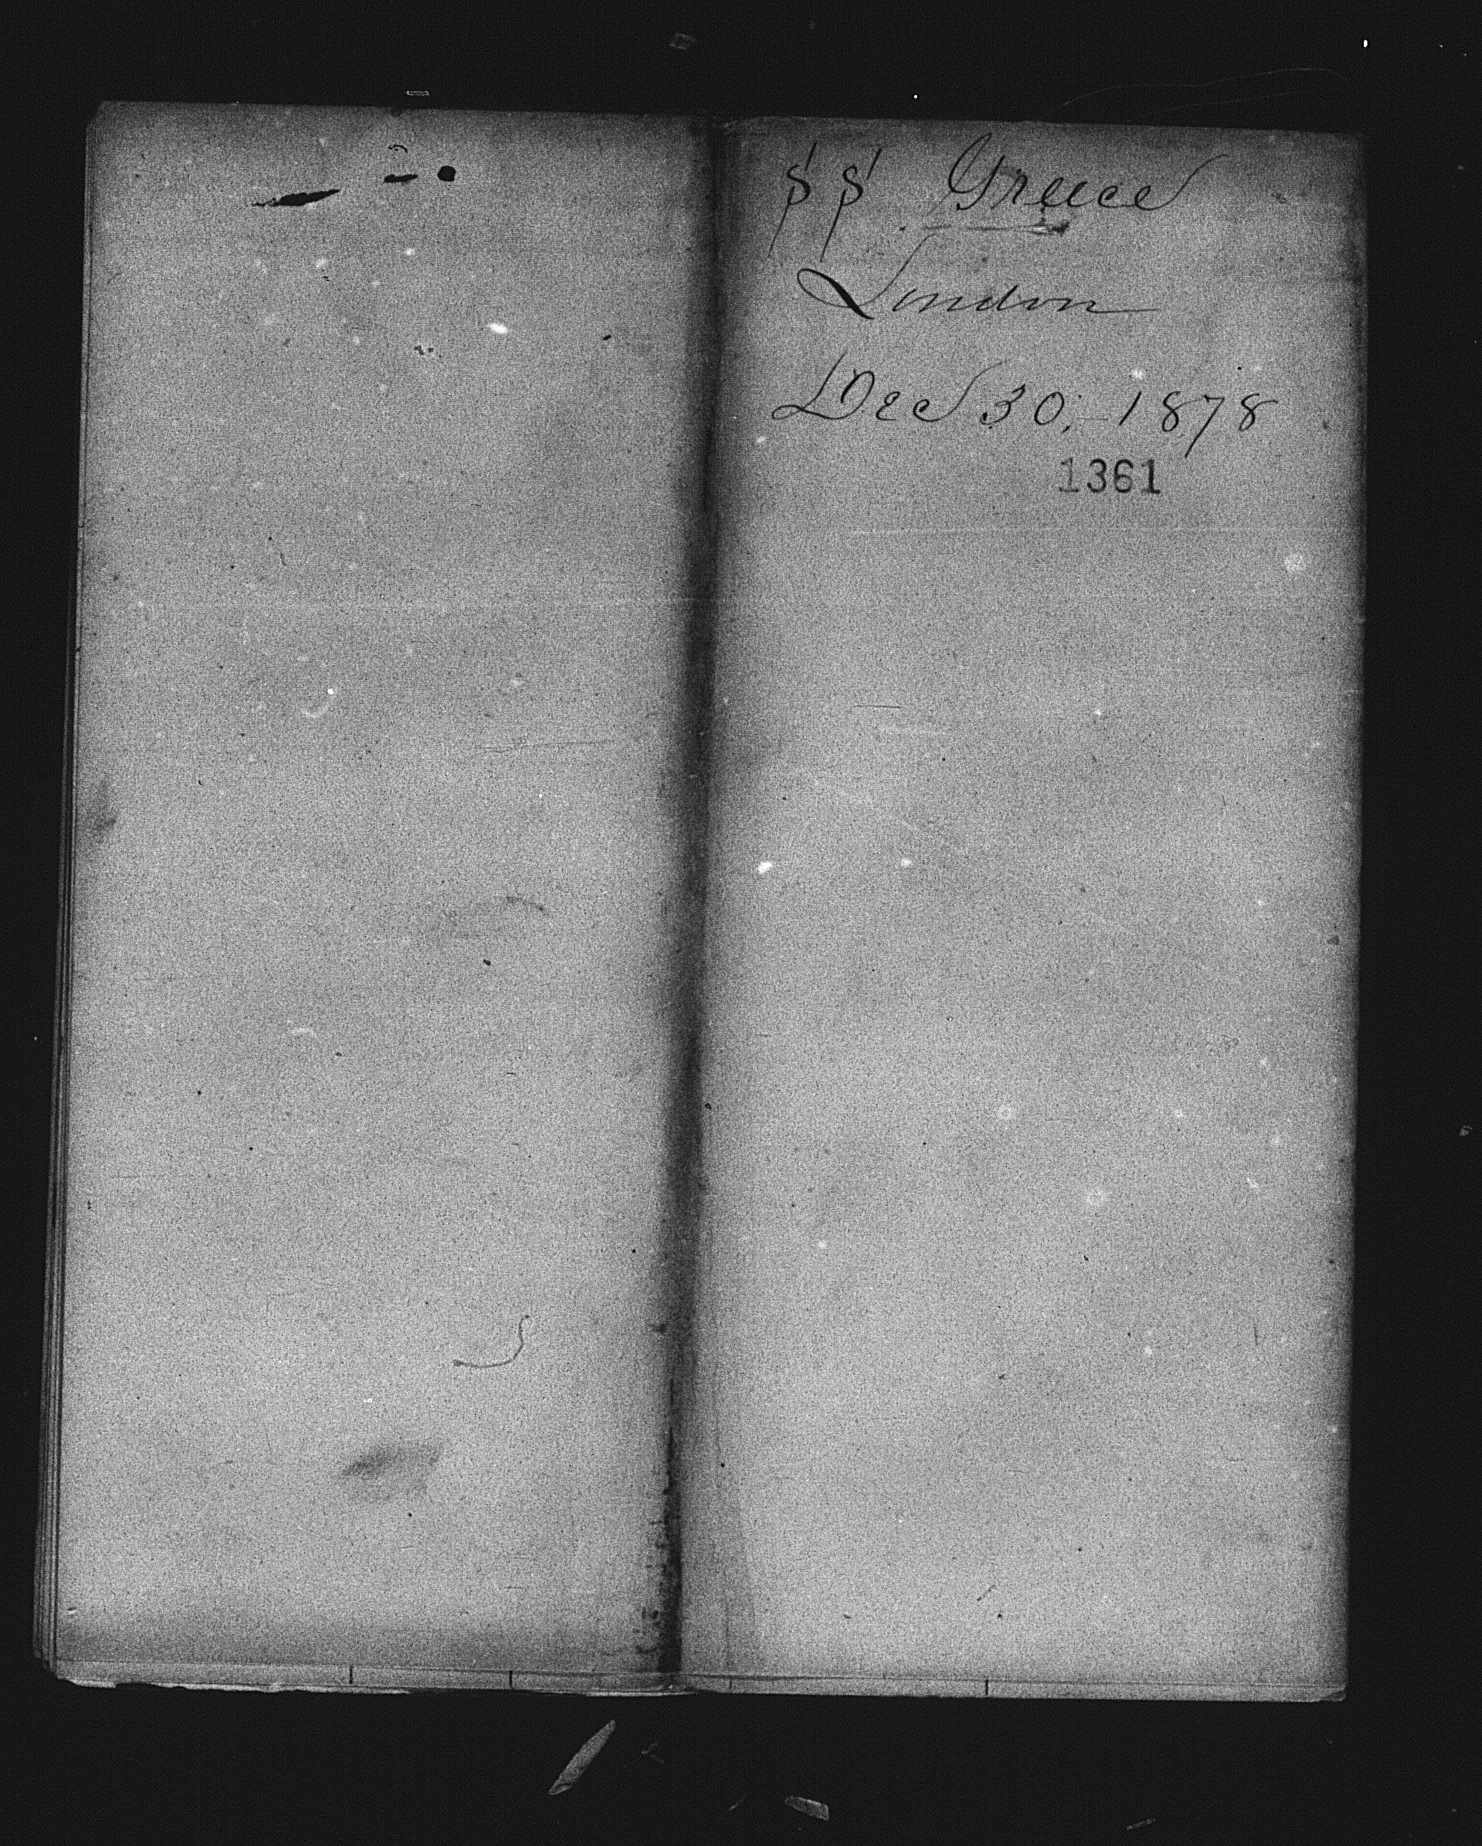 SS Greece
London
Dec 30, - 1878
1361